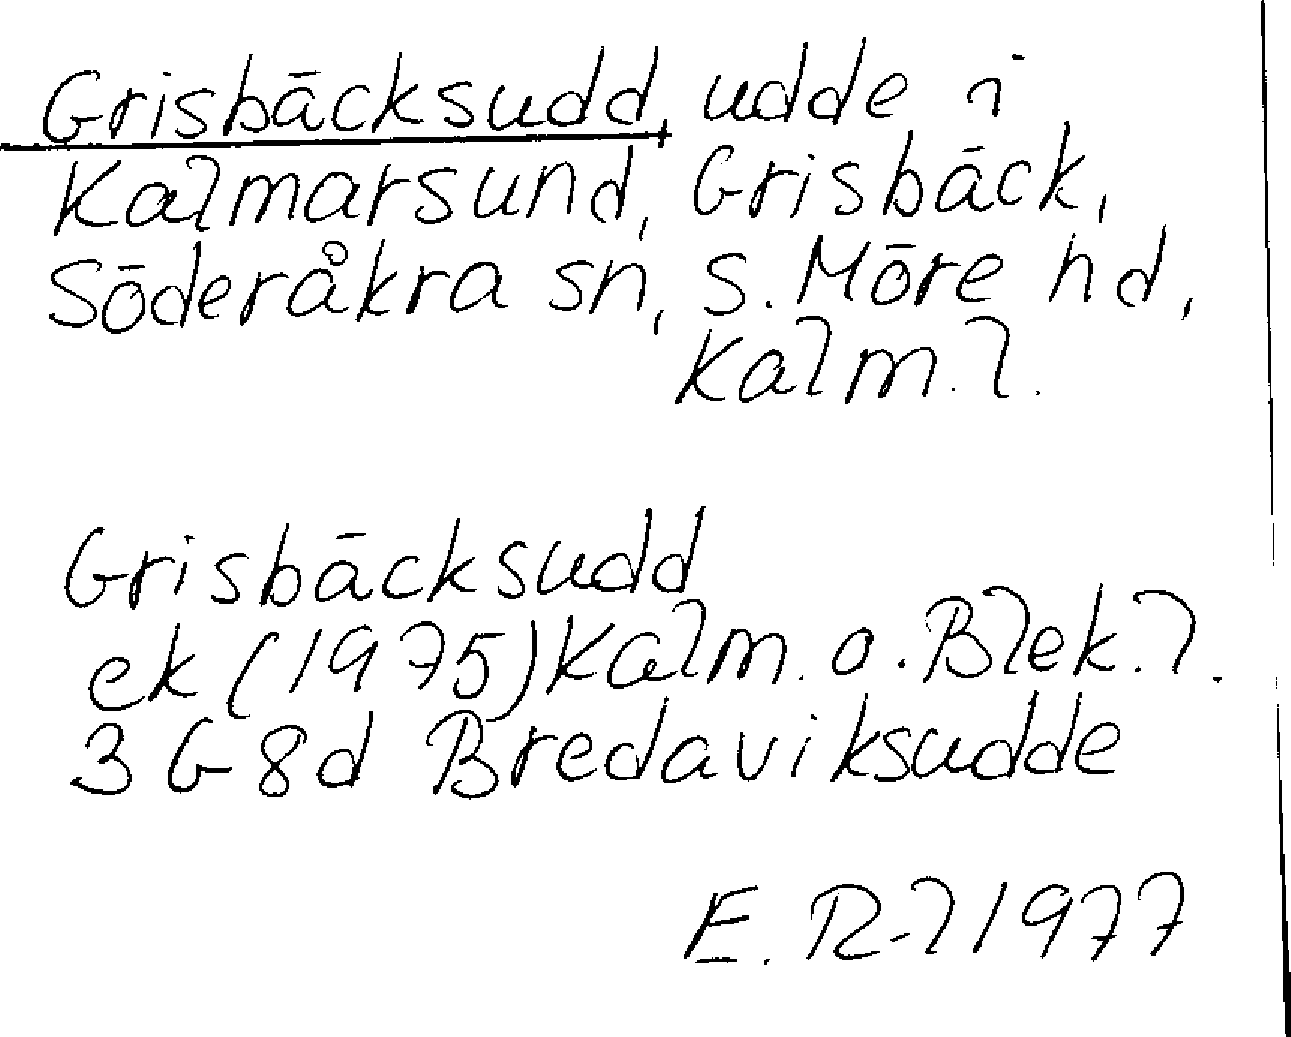 Grisbäcksudd, udde i
Kalmarsund, Grisbäck,
Söderåkra sn, S. Möre hd,
Kalm. l.
Grisbäcksudd
ek (1975) Kalm. o. Blek. l.
3 G 8d Bredaviksudde
E. R-l 1977